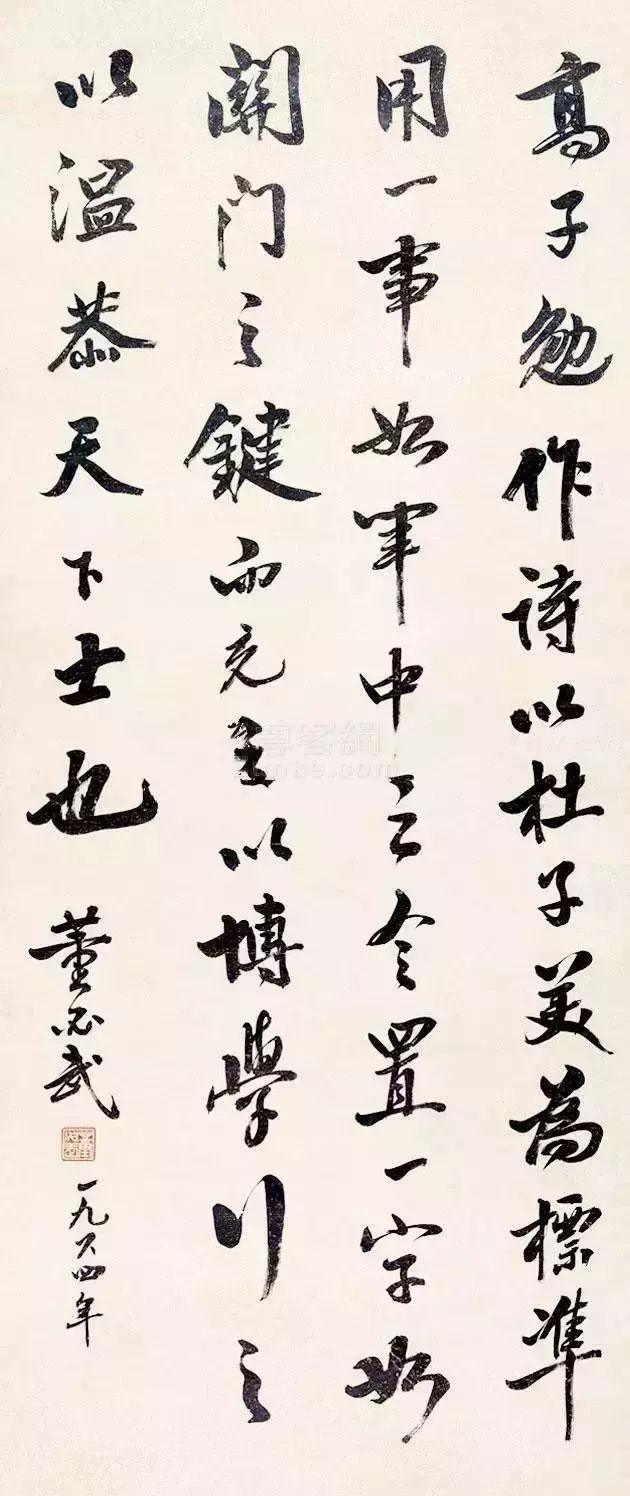 高子勉作诗以杜子美为標準
用一事如军中之令置一字如
關门之鍵而充之以博學行之
以温恭天下士也
董必武
一九六四年
尊客網